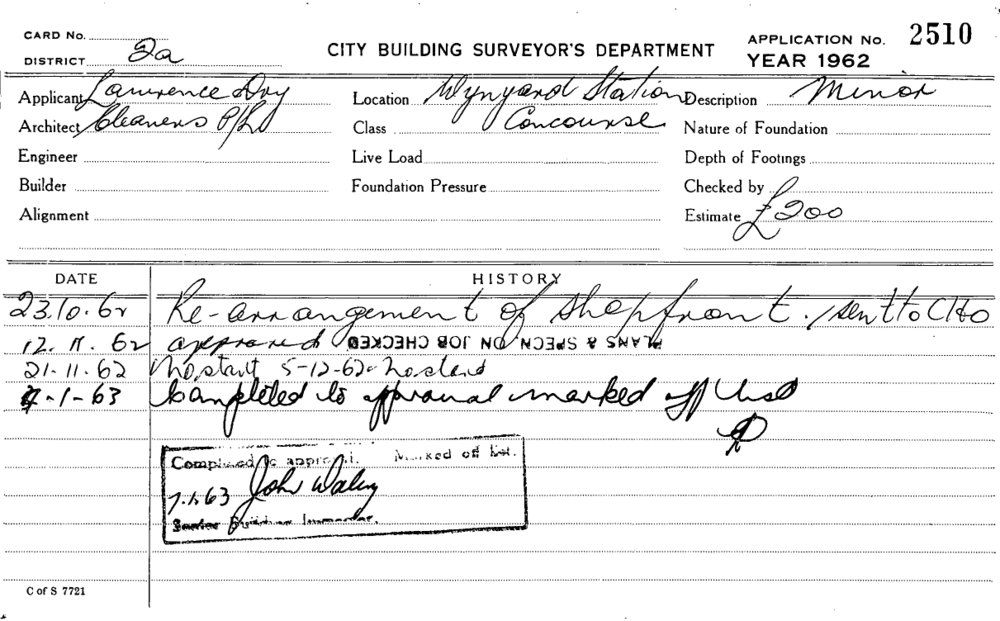 CARD No.
DISTRICT 2a
CITY BUILDING SURVEYOR'S DEPARTMENT
APPLICATION No. 2510
YEAR 1962
Applicant Lawrence Dry
Architect Cleaners P/L
Engineer
Builder
Alignment
Location Wynyard Station
Class Concourse
Live Load
Foundation Pressure
Description Minor
Nature of Foundation
Depth of Footings
Checked by
Estimate £200
DATE HISTORY
23.10.62 Re-arrangement of shopfront. sent to CHO
12.11.62 approved PLANS & SPECN ON JOB CHECKED
21.11.62 No start 5-12-62 - No start
7-1-63 Completed to approval marked off list
Completed to approval. Marked off list.
7.1.63 John Waley
Senior Building Inspector.
C of S 7721